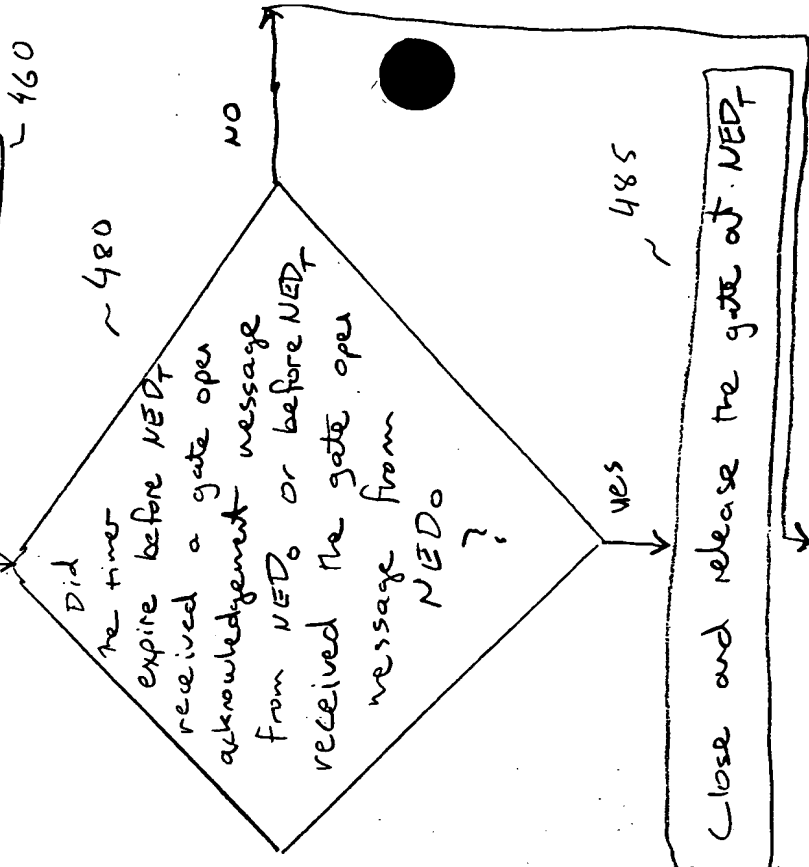 ~ 460
~ 480
Did
the timer
expire before NED_T
received a gate open
acknowledgement message
from NED_O or before NED_T
received the gate open
message from
NED_O
?
NO
yes
~ 485
Close and release the gate at NED_T